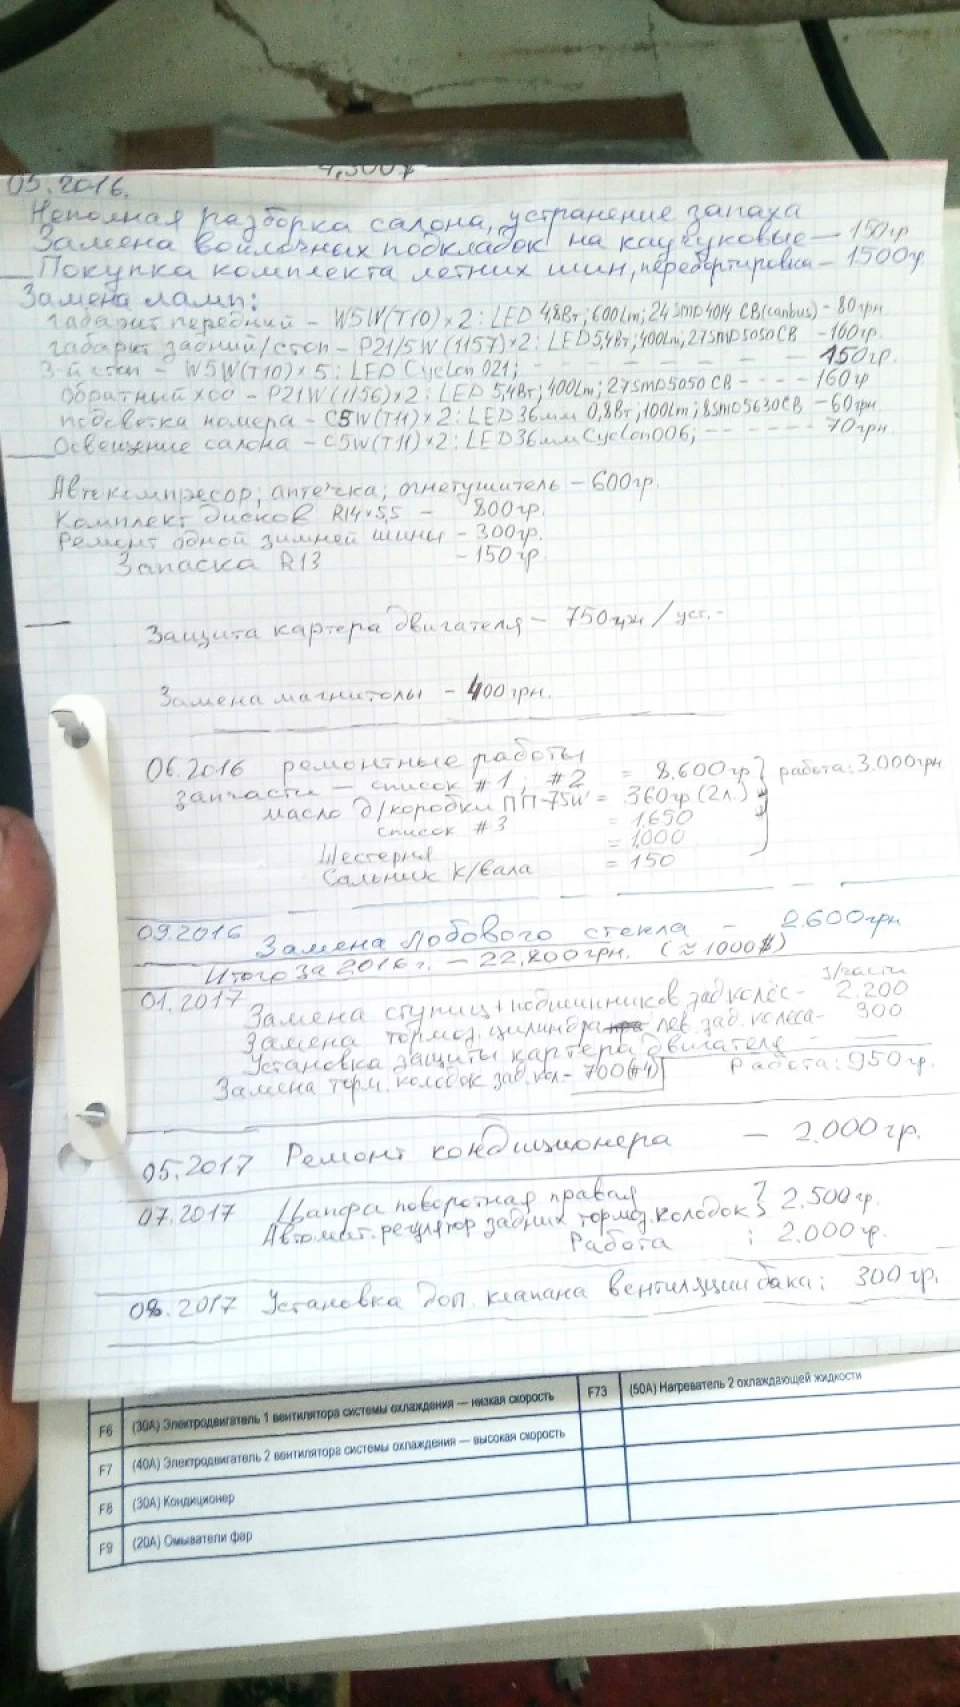 05.2016.
Неполная разборка салона, устранение запаха
Замена войлочных подкладок на каучуковые — 150гр
Покупка комплекта летних шин, перебортировка — 1500гр
Замена ламп:
габарит передний — W5W(T10)×2: LED 4,8Вт; 600Lm; 24SMD4014 CB(canbus) - 80грн
габарит задний/стоп — P21/5W(1157)×2: LED5,4Вт; 400Lm; 27SMD5050CB - 160гр.
3-й стоп — W5W(T10)×5: LED Cyclon 021; - - - - - - 150гр.
Обратный ход - P21W(1156)×2: LED 5,4Вт; 400Lm; 27SMD5050 CB - - - - 160гр
подсветка номера — C5W(T11)×2: LED36мм 0,8Вт; 100Lm; 8SMD5630CB - 60грн
Освещение салона — C5W(T11)×2: LED36мм Cyclon006; - - - - - - 70грн.
Автокомпресор; аптечка; огнетушитель — 600гр.
Комплект дисков R14×5,5 — 800гр.
Ремонт одной зимней шины - 300гр.
Запаска R13 - 150гр
Защита картера двигателя — 750грн / уст. -
Замена магнитолы - 400грн.
06.2016 ремонтные работы
запчасти — список #1; #2 = 8.600гр } работа: 3.000грн
масло д/коробки ПП-75W = 360гр (2л.)
список #3 = 1,650
Шестерня = 1,000
Сальник к/вала = 150
09.2016 Замена лобового стекла - 2.600грн
Итого за 2016г. — 22,800грн. (≈1000$)
з/части
01.2017 Замена ступиц+подшипников зад колёс - 2.200
Замена тормоз. цилиндра лев. зад. колеса - 300
Установка защиты картера двигателя - —
Замена торм. колодок зад. кол - 700(#4) Работа: 950гр.
05.2017 Ремонт кондиционера — 2.000гр.
07.2017 Цапфа поворотная правая } 2.500гр.
Автомат. регулятор задних тормоз. колодок
Работа ; 2.000гр.
08.2017 Установка доп. клапана вентиляции бака; 300гр.
F6 (30А) Электродвигатель 1 вентилятора системы охлаждения — низкая скорость F73 (50А) Нагреватель 2 охлаждающей жидкости
F7 (40А) Электродвигатель 2 вентилятора системы охлаждения — высокая скорость
F8 (30А) Кондиционер
F9 (20А) Омыватели фар